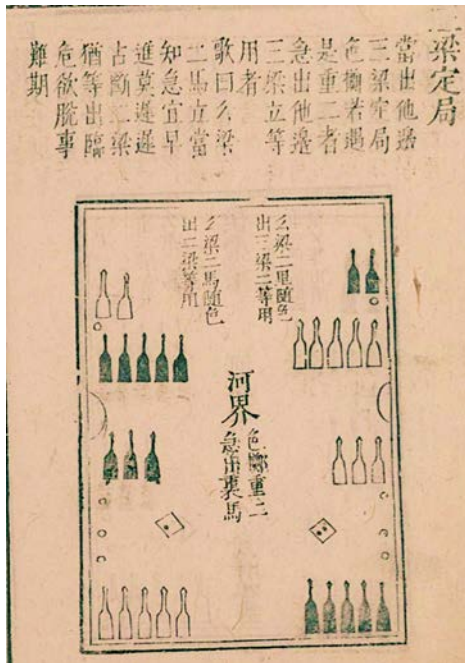 二梁定局
當出他邊
三梁定局
色擲若遇
是重二者
急出他邊
三梁立等
用者
歌曰么梁
二馬立當
知急宜早
進莫遲遲
占斷二梁
猶等出臨
危欲脫事
難期
么梁二里隨色
出三梁二等用
么梁二馬隨色
出二梁等用
河界
色擲重二
急出裏馬